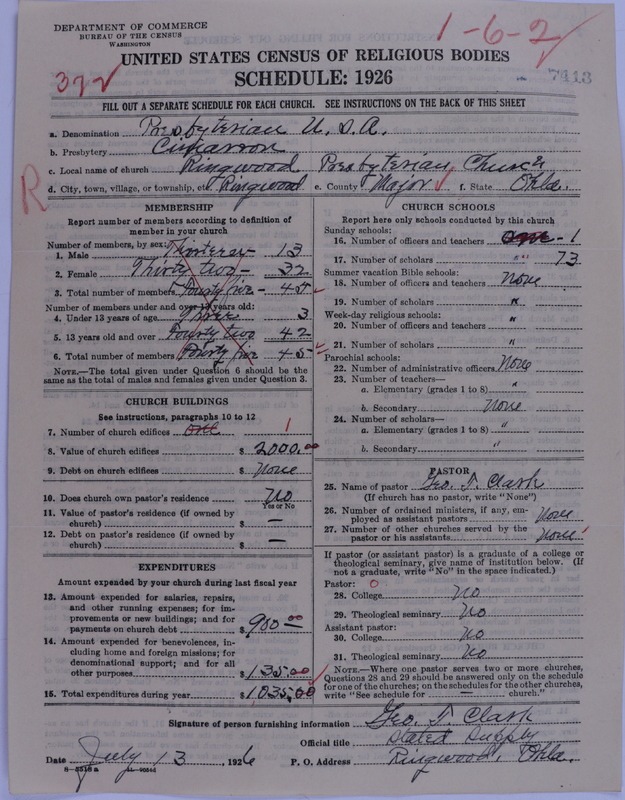 DEPARTMENT OF COMMERCE
BUREAU OF THE CENSUS
WASHINGTON
1-6-2
372
7413
UNITED STATES CENSUS OF RELIGIOUS BODIES
SCHEDULE: 1926
FILL OUT A SEPARATE SCHEDULE FOR EACH CHURCH. SEE INSTRUCTIONS ON THE BACK OF THIS SHEET
a. Denomination Presbyterian U.S.A.
b. Presbytery Cimarron
c. Local name of church Ringwood Presbyterian Church
R
d. City, town, village, or township, or Ringwood e. County Major f. State Okla.
MEMBERSHIP
Report number of members according to definition of
member in your church
Number of members, by sex:
1. Male Thirteen - 13
2. Female Thirty two - 32
3. Total number of members Fourty five - 45
Number of members under and over 13 years old:
4. Under 13 years of age Three 3
5. 13 years old and over Fourty two 42
6. Total number of members Fourty five 45
NOTE.—The total given under Question 6 should be the
same as the total of males and females given under Question 3.
CHURCH BUILDINGS
See instructions, paragraphs 10 to 12
7. Number of church edifices one 1
8. Value of church edifices $ 2000.00
9. Debt on church edifices $ None
10. Does church own pastor's residence No
Yes or No
11. Value of pastor's residence (if owned by
church) $ —
12. Debt on pastor's residence (if owned by
church) $ —
EXPENDITURES
Amount expended by your church during last fiscal year
13. Amount expended for salaries, repairs,
and other running expenses; for im-
provements or new buildings; and for
payments on church debt $ 900.00
14. Amount expended for benevolences, in-
cluding home and foreign missions; for
denominational support; and for all
other purposes $ 135.00
15. Total expenditures during year $ 1035.00
CHURCH SCHOOLS
Report here only schools conducted by this church
Sunday schools:
16. Number of officers and teachers one - 1
17. Number of scholars " 73
Summer vacation Bible schools:
18. Number of officers and teachers None
19. Number of scholars "
Week-day religious schools:
20. Number of officers and teachers "
21. Number of scholars "
Parochial schools:
22. Number of administrative officers None
23. Number of teachers—
a. Elementary (grades 1 to 8) "
b. Secondary None
24. Number of scholars—
a. Elementary (grades 1 to 8) "
b. Secondary "
PASTOR
25. Name of pastor Geo. T. Clark
(If church has no pastor, write "None")
26. Number of ordained ministers, if any, em-
ployed as assistant pastors None
27. Number of other churches served by the
pastor or his assistants None
If pastor (or assistant pastor) is a graduate of a college or
theological seminary, give name of institution below. (If
not a graduate, write "No" in the space indicated.)
Pastor: O
28. College No
29. Theological seminary No
Assistant pastor:
30. College No
31. Theological seminary No
NOTE.—Where one pastor serves two or more churches,
Questions 28 and 29 should be answered only on the schedule
for one of the churches; on the schedules for the other churches,
write "See schedule for — church."
Signature of person furnishing information Geo. T. Clark
Official title Stated Supply
Date July 13, 1926 P. O. Address Ringwood, Okla.